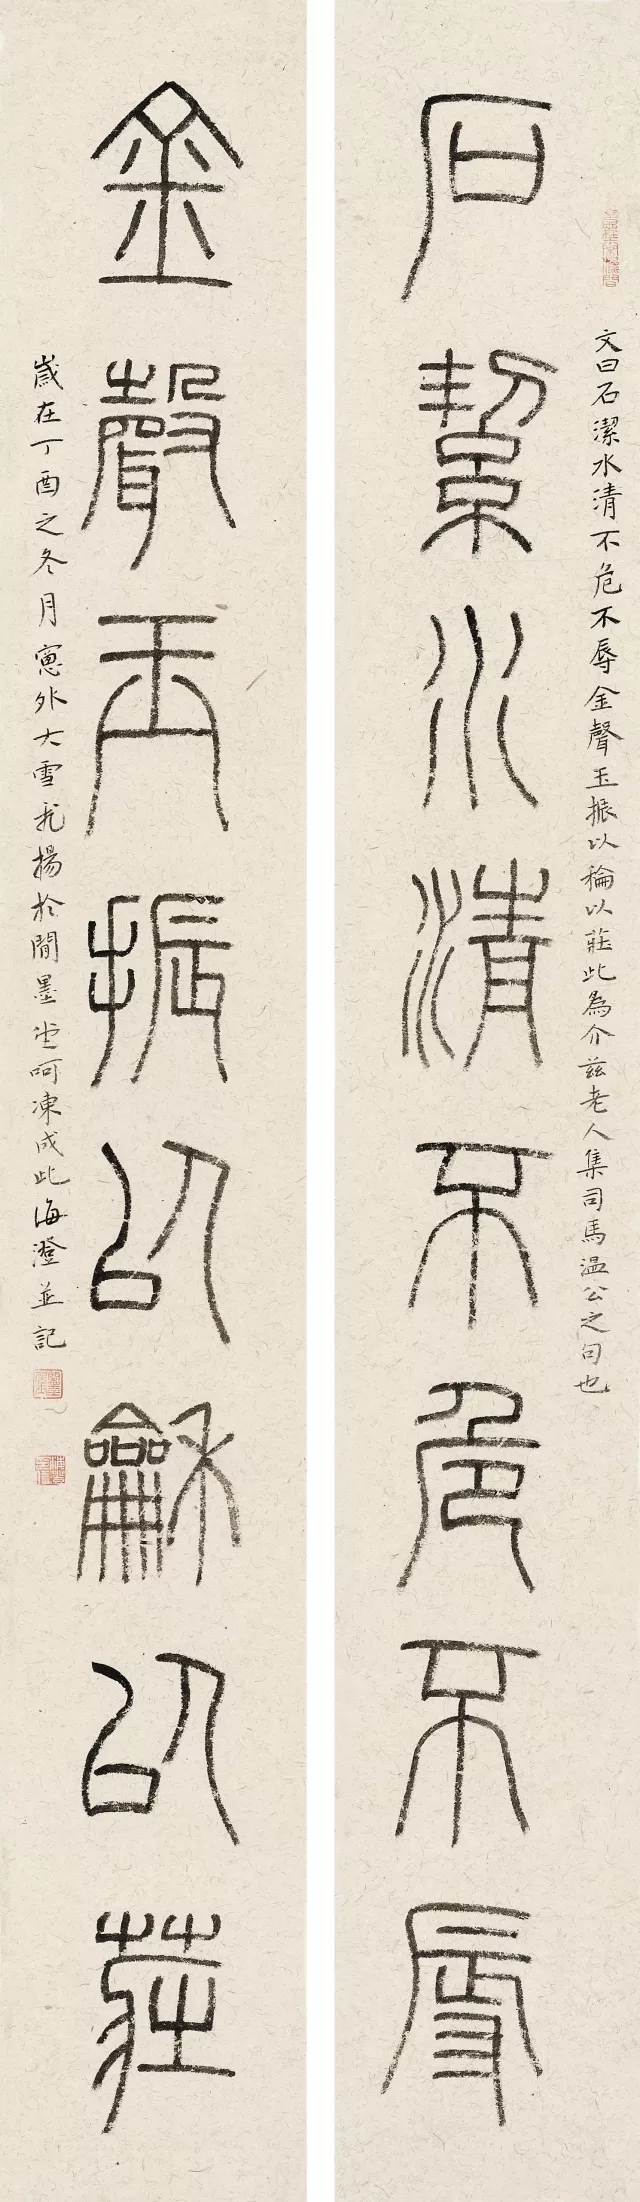 石絜水清不危不辱
文曰石潔水清不危不辱金聲玉振以龢以莊此為介茲老人集司馬温公之句也
金聲玉振以龢以莊
歲在丁酉之冬月窗外大雪飛揚於閒墨堂呵凍成此海澄並記